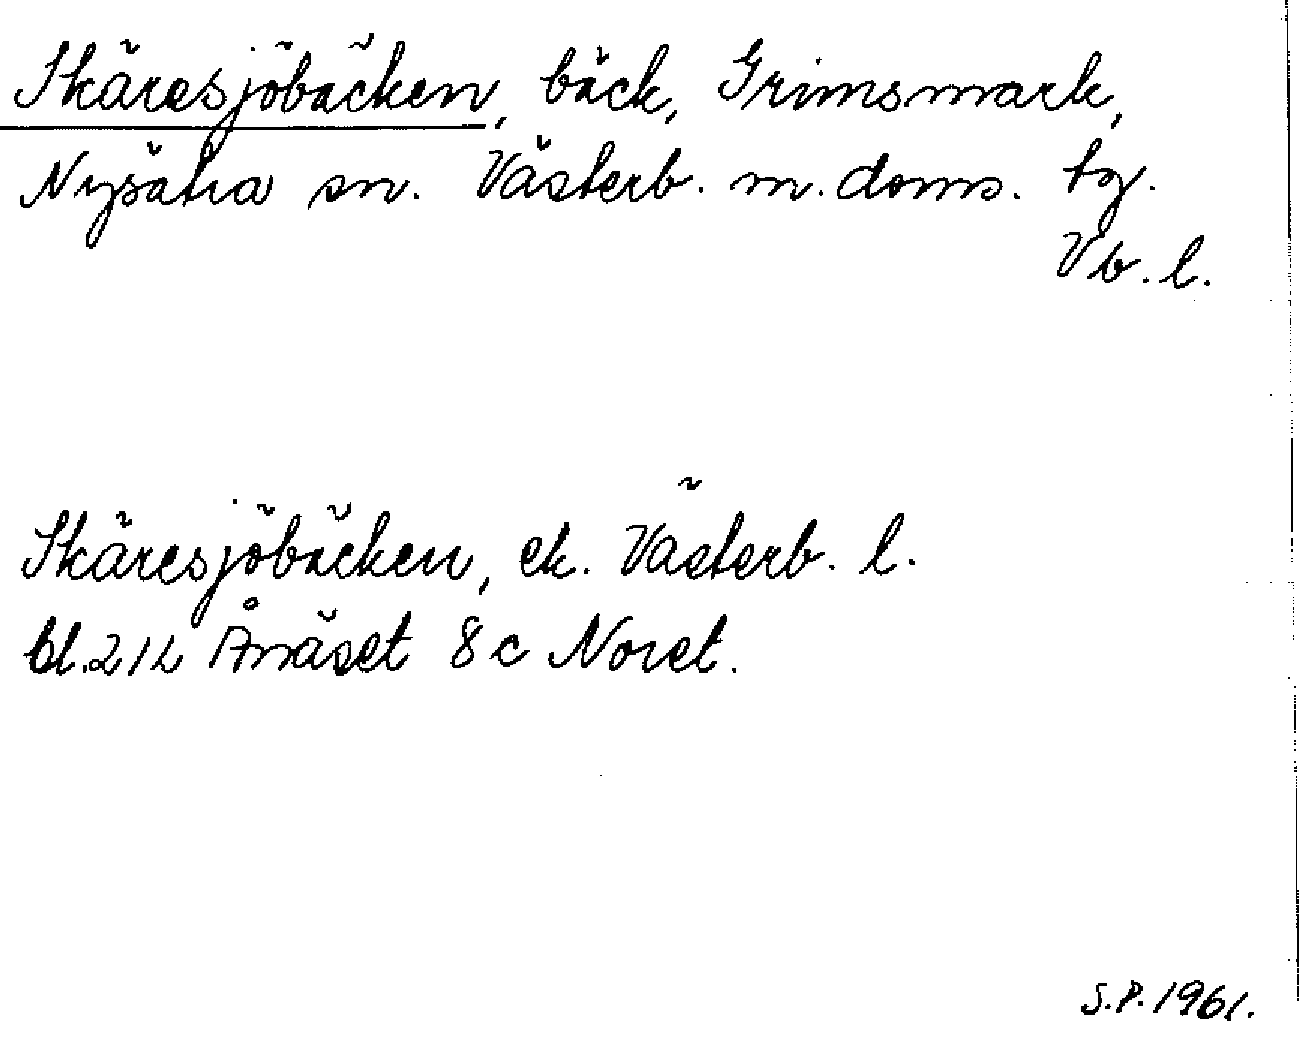 Skäresjöbäcken, bäck, Grimsmark,
Nysätra sn. Västerb. m. doms. tg.
Vb. l.
Skäresjöbäcken, ek. Västerb. l.
bl. 21L Ånäset 8c Noret.
S.P. 1961.